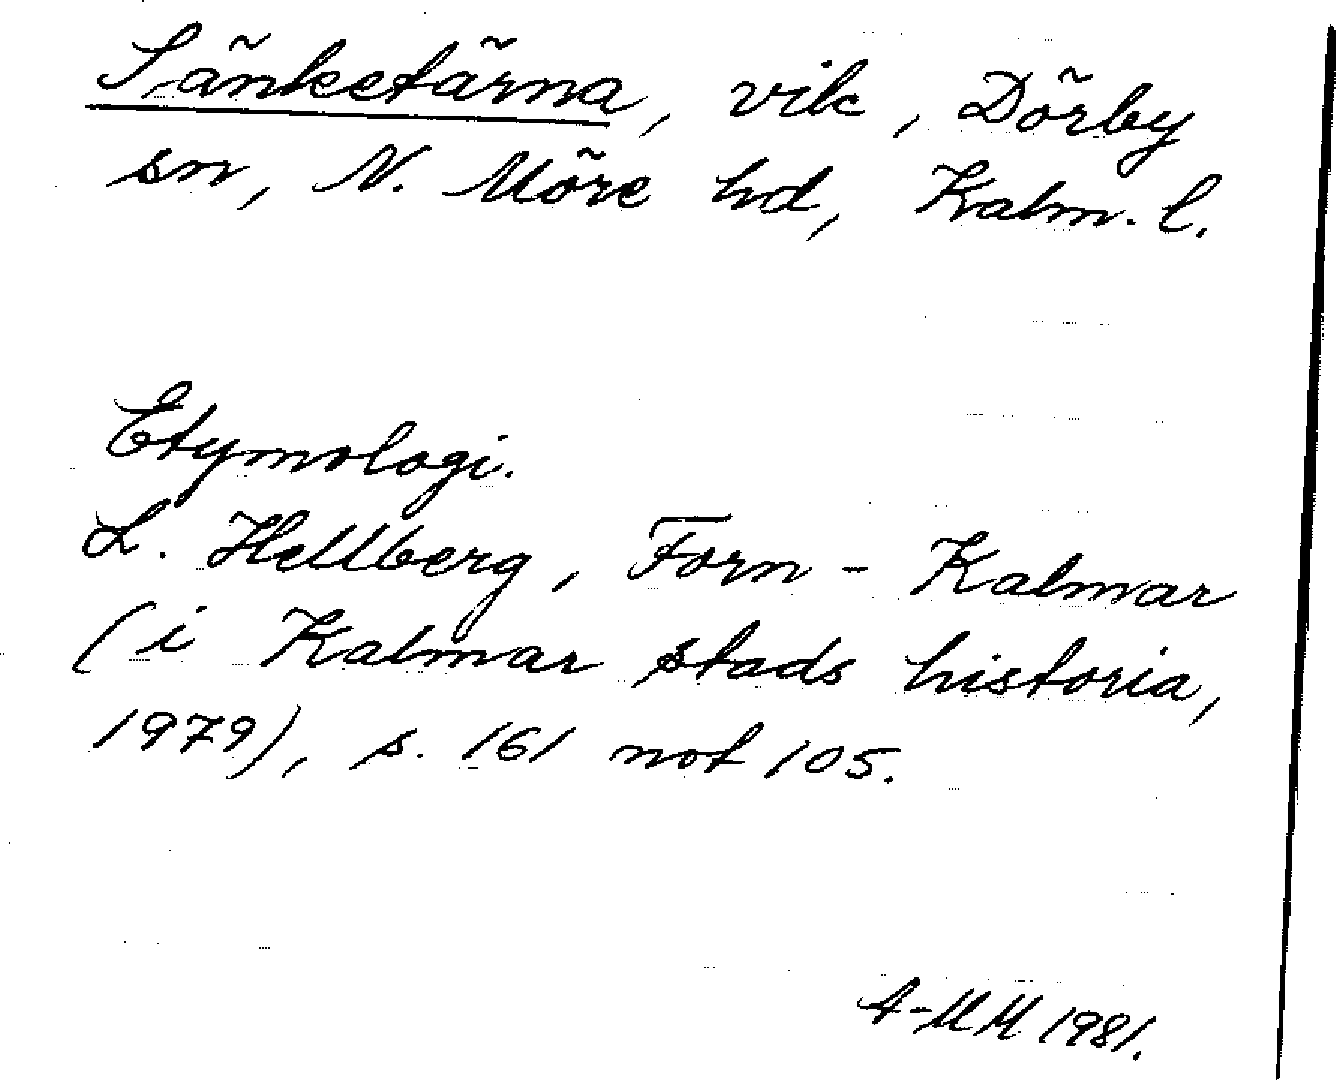 Sänketärna, vik, Dörby
sn, N. Möre hd, Kalm. l.
Etymologi.
L. Hellberg, Forn-Kalmar
(i Kalmar stads historia,
1979), s. 161 not 105.
A-MM 1981.